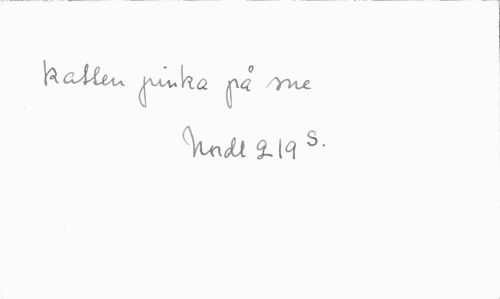 katten pinka på sne
Nordl 219 S.